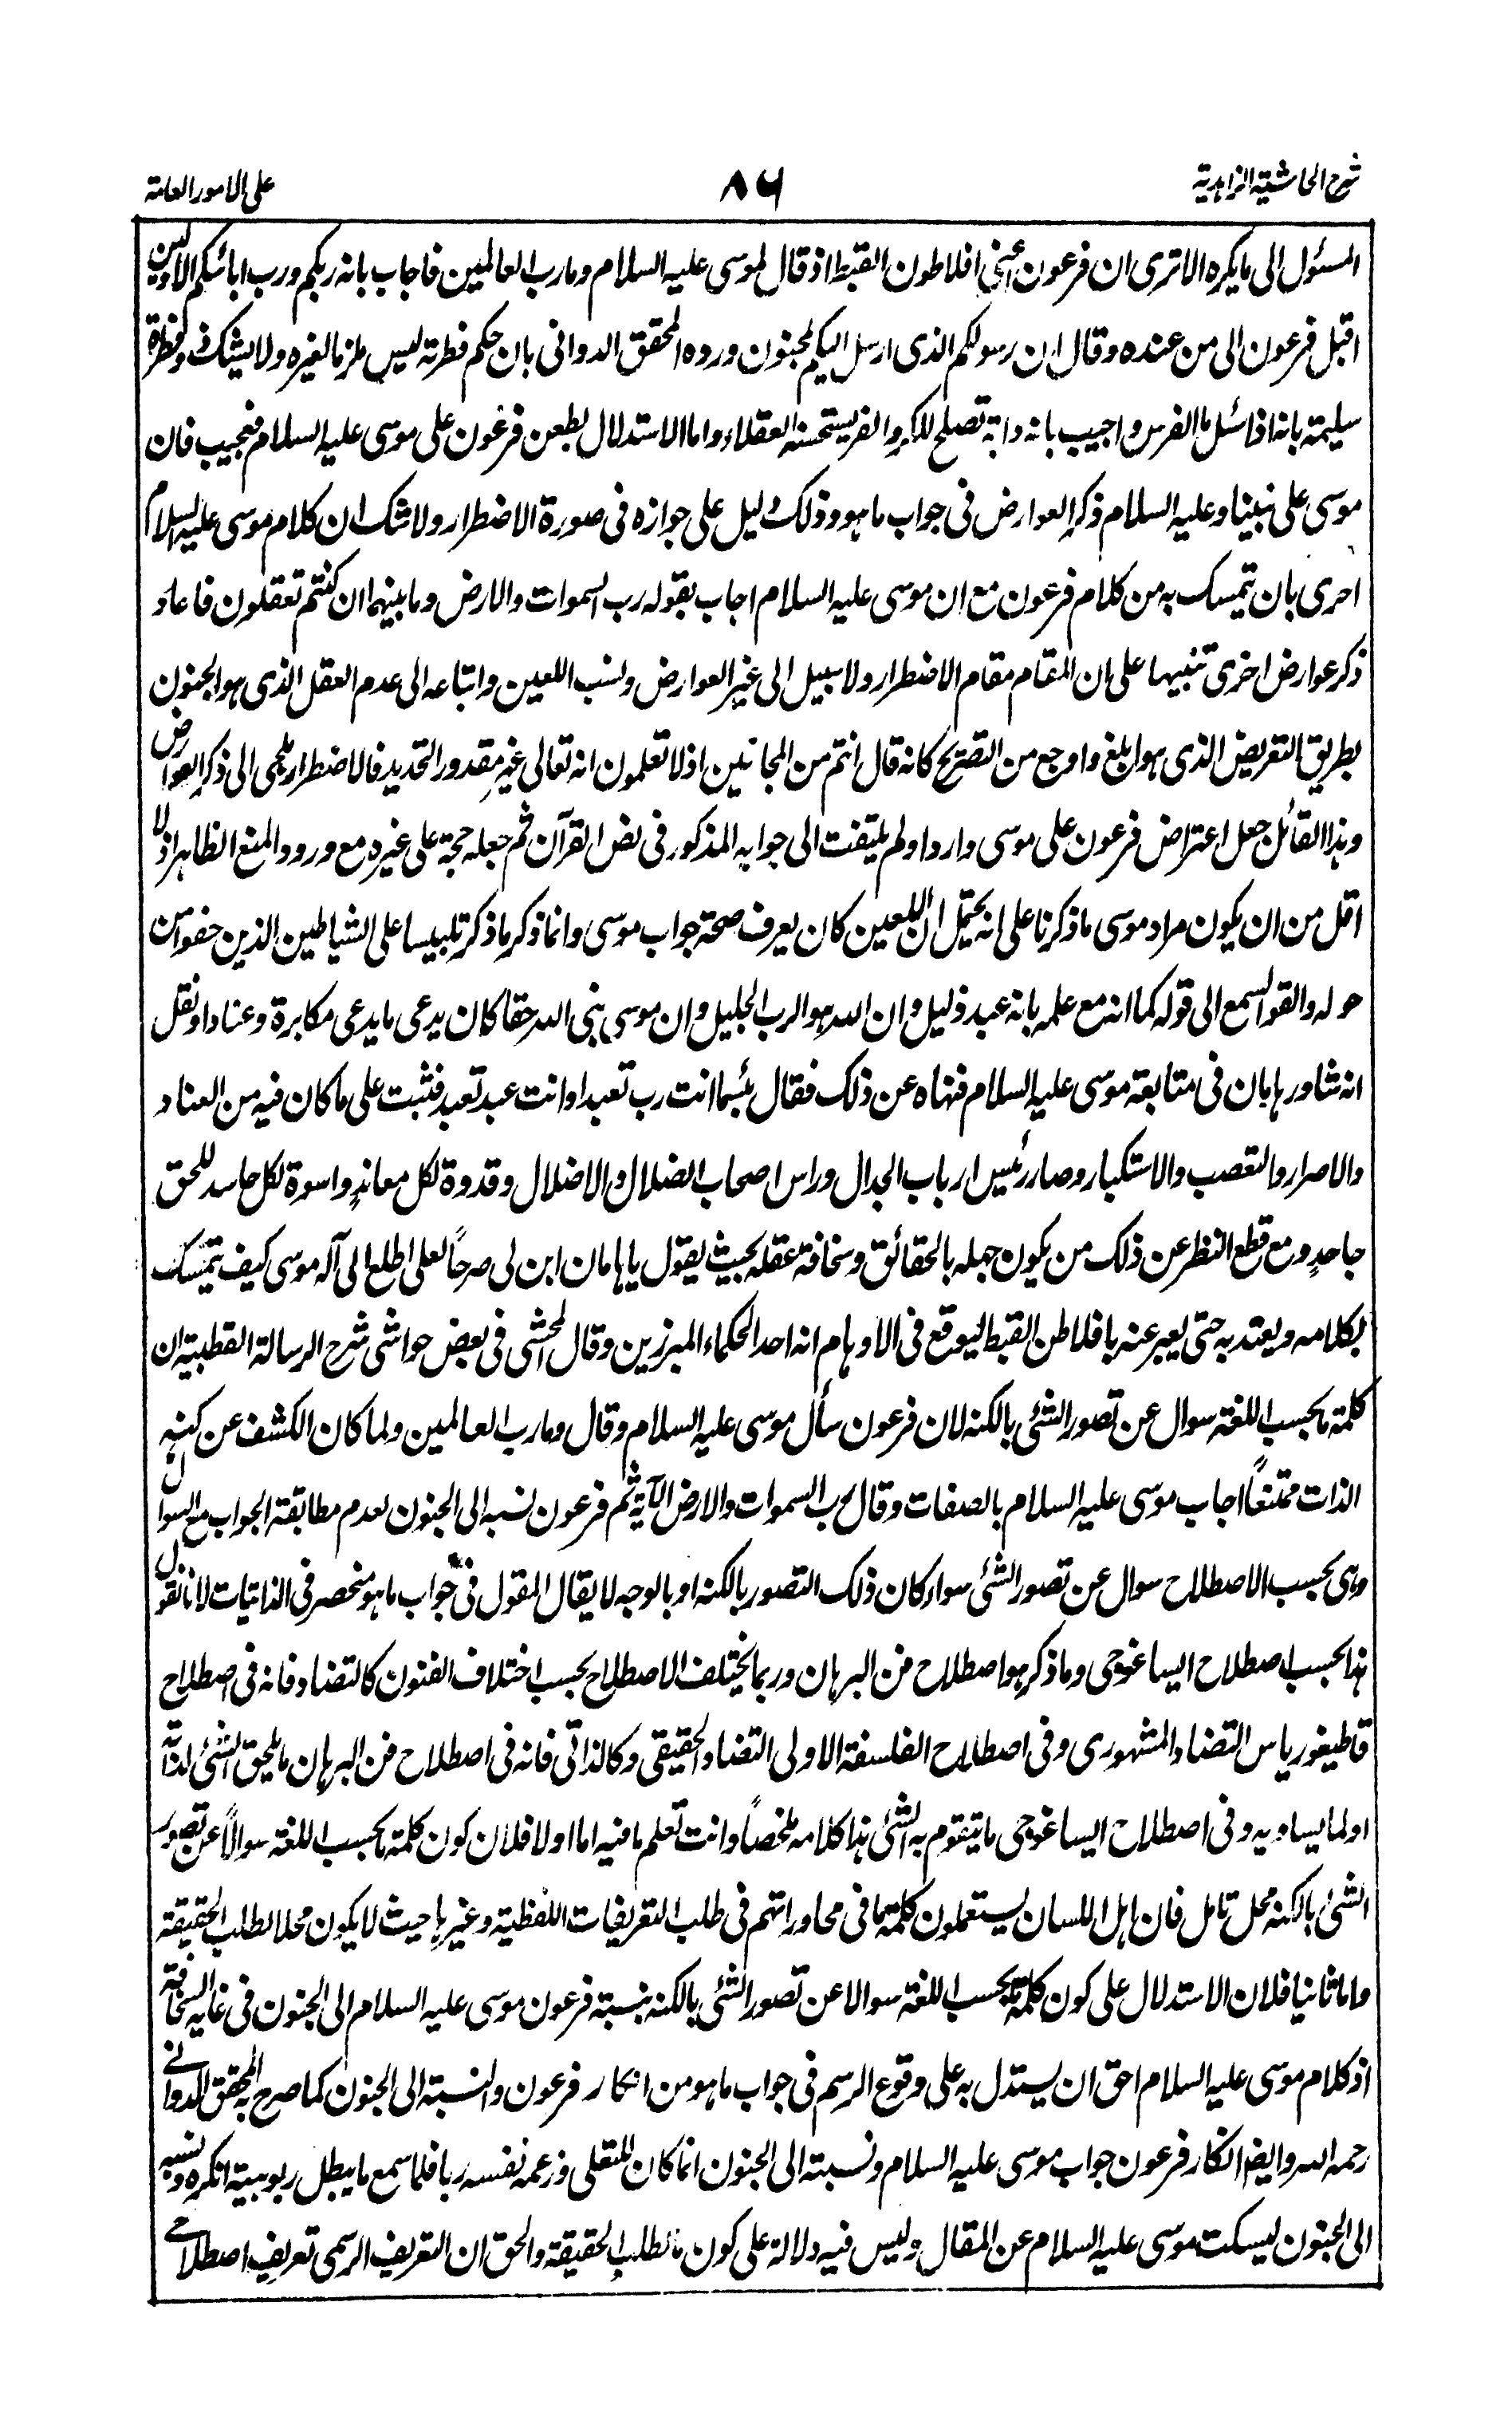 شرح الحاشية الزاهدية
٨٦
على الامور العامة
المسئول الى ما يكره الا ترى ان فرعون اعنى افلاطون القبط اذ قال لموسى عليه السلام وما رب العالمين فاجاب بانه ربكم ورب ابائكم الاولين
اقبل فرعون الى من عنده وقال ان رسولكم الذى ارسل اليكم لمجنون ورده المحقق الدوانى بان حكم فطرته ليس ملزما لغيره ولا يشك ذو فطرة
سليمة بانه اذا سئل ما الفرس واجيب بانه دابة تصلح للكر والفر يستحسنه العقلاء واما الاستدلال بطعن فرعون على موسى عليه السلام فعجيب فان
موسى على نبينا وعليه السلام ذكر العوارض فى جواب ما هو وذلك دليل على جوازه فى صورة الاضطرار ولا شك ان كلام موسى عليه السلام
احرى بان تيمسك به من كلام فرعون مع ان موسى عليه السلام اجاب بقوله رب السموات والارض وما بينهما ان كنتم تعقلون فاعاد
ذكر عوارض اخرى تنبيها على ان المقام مقام الاضطرار ولا سبيل الى غير العوارض ونسب اللعين واتباعه الى عدم العقل الذى هو الجنون
بطريق التعريض الذى هو ابلغ واوجع من التصريح كانه قال انتم من المجانين اذ لا تعلمون انه تعالى غير مقدور التحديد فالاضطرار يلجى الى ذكر العوارض
وهذا القائل جعل اعتراض فرعون على موسى واردا ولم يلتفت الى جوابه المذكور فى نص القرآن ثم جعله حجة على غيره مع ورود المنع الظاهر اذ لا
اقل من ان يكون مراد موسى ما ذكرنا على انه يحتمل ان اللعين كان يعرف صحة جواب موسى وانما ذكر ما ذكر تلبيسا على الشياطين الذين حفوا من
حوله والقوا السمع الى قوله كما انه مع علمه بانه عبد ذليل وان الله هو الرب الجليل وان موسى نبى الله حقا كان يدعى ما يدعى مكابرة وعنادا ونقل
انه شاور هامان فى متابعة موسى عليه السلام فنهاه عن ذلك فقال بئسما انت رب تعبد او انت عبد تعبد فثبت على ما كان فيه من العناد
والاصرار والتعصب والاستكبار وصار رئيس ارباب الجدال وراس اصحاب الضلال والاضلال وقدوة لكل معاند واسوة لكل حاسد للحق
جاحد ومع قطع النظر عن ذلك من يكون جهله بالحقائق وسخافة عقله بحيث يقول يا هامان ابن لى صرحاً لعلى اطلع الى آله موسى كيف يتمسك
بكلامه ويعتد به حتى يعبر عنه بافلاطن القبط ليوقع فى الاوهام انه احد الحكماء المبرزين وقال المحشى فى بعض حواشى شرح الرسالة القطبية ان
كلمة ما بحسب اللغة سوال عن تصور الشئ بالكنه لان فرعون سأل موسى عليه السلام وقال وما رب العالمين ولما كان الكشف عن كنه
الذات ممتنعاً اجاب موسى عليه السلام بالصفات وقال رب السموات والارض الآية ثم فرعون نسبه الى الجنون لعدم مطابقة الجواب مع السوال
وهى بحسب الاصطلاح سوال عن تصور الشئ سواء كان ذلك التصور بالكنه او بالوجه لا يقال المقول فى جواب ما هو منحصر فى الذاتيات لانا نقول
هذا بحسب اصطلاح ايساغوجى وما ذكر هو اصطلاح فن البرهان وربما يختلف الاصطلاح بحسب اختلاف الفنون كالتضاد فانه فى اصطلاح
قاطيغورياس التضاد المشهورى وفى اصطلاح الفلسفة الاولى التضاد الحقيقى وكالذاتى فانه فى اصطلاح فن البرهان ما يلحق الشئ لذاته
او لما يساويه وفى اصطلاح ايساغوجى ما يتقوم به الشئ هذا كلامه ملخصاً وانت تعلم ما فيه اما اولا فلان كون كلمة ما بحسب اللغة سوالاً عن تصور
الشئ بالكنه محل تامل فان اهل اللسان يستعملون كلمة ما فى محاوراتهم فى طلب التعريفات اللفظية وغيرها حيث لا يكون محلا لطلب الحقيقة
واما ثانيا فلان الاستدلال على كون كلمة ما بحسب اللغة سوالا عن تصور الشئ بالكنه بنسبة فرعون موسى عليه السلام الى الجنون فى غاية السخافة
اذ كلام موسى عليه السلام احق ان يستدل به على وقوع الرسم فى جواب ما هو من انكار فرعون والنسبة الى الجنون كما صرح به المحقق الدوانى
رحمه الله وايضا انكار فرعون جواب موسى عليه السلام ونسبته الى الجنون انما كان للتعلى وزعمه نفسه ربا فلما سمع ما يبطل ربوبيته انكره ونسبه
الى الجنون ليسكت موسى عليه السلام عن المقال وليس فيه دلالة على كون ما لطلب الحقيقة والحق ان التعريف الرسمى تعريف اصطلاحى